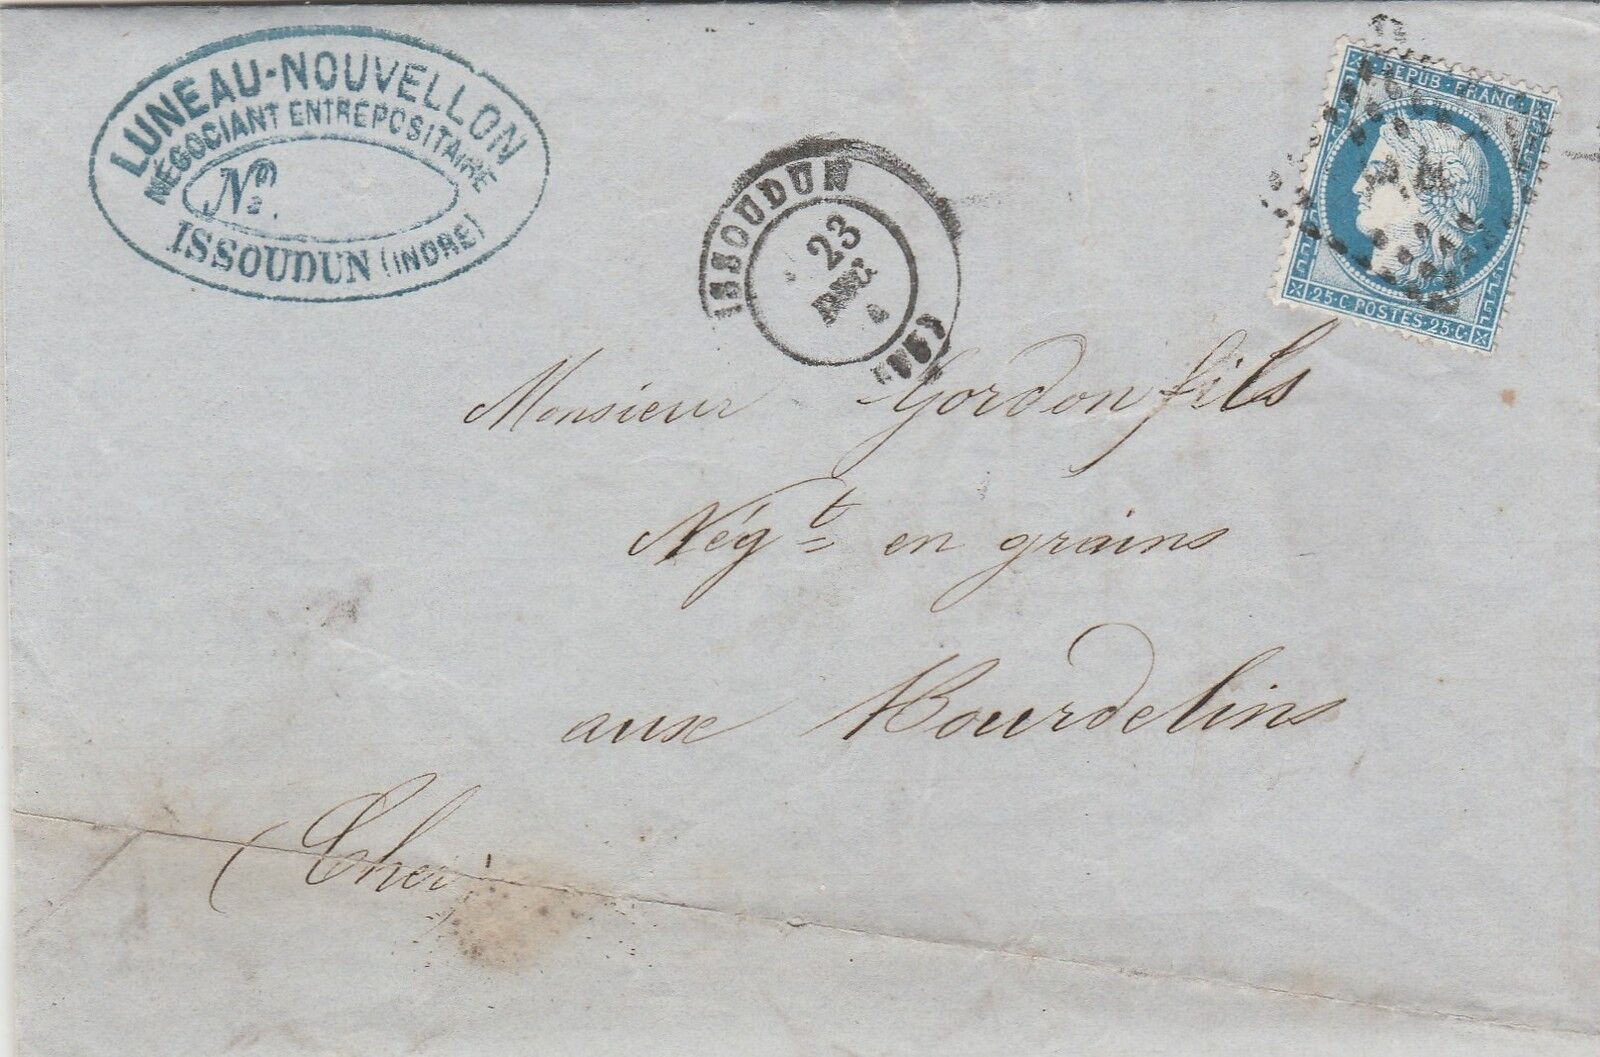 LUNEAU-NOUVELLON
NÉGOCIANT ENTREPOSITAIRE
No.
ISSOUDUN (INDRE)
ISSOUDUN
23
DEC
REPUB·FRANC·
25·C·POSTES·25·C·
Monsieur Gordon fils
Négt en grains
aux Bourdelins
Cher